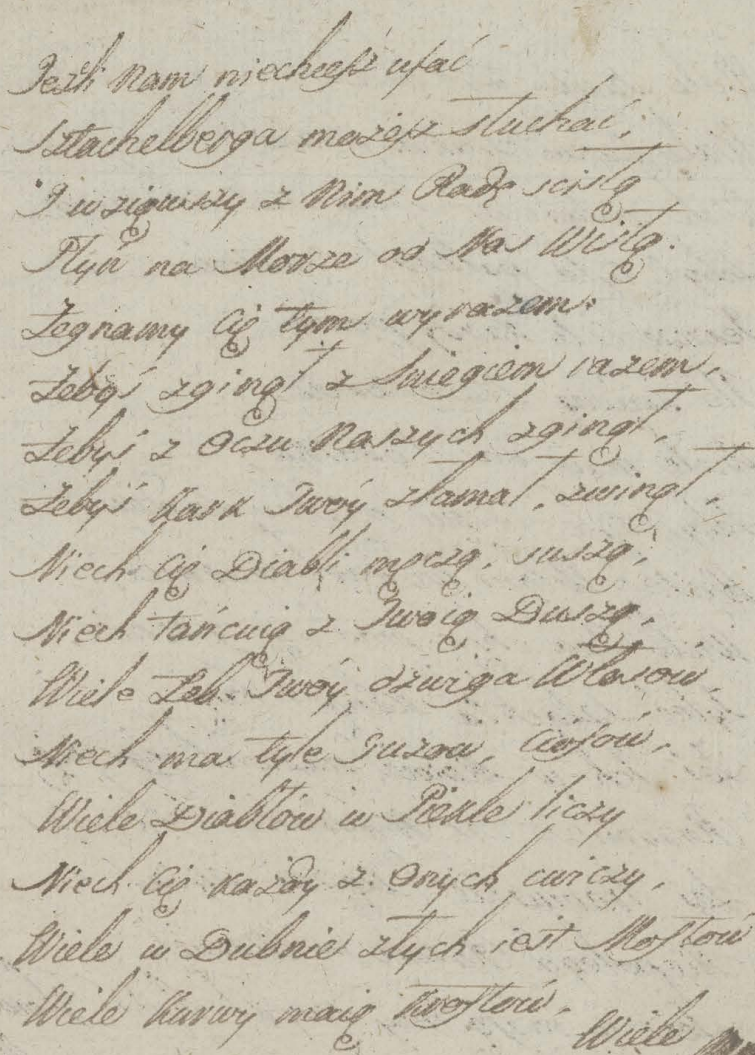 Jeźli Nam niechcesz ufać
Sztachelberga możesz słuchać,
I wziąwszy z Nim Radę scisłą
Płyń na Morze od Nas Wisłą.
Żegnamy Cię tym wyrazem.
Żebyś zginął z Sniegiem razem,
Żebyś z Oczu Naszych zginął,
Żebyś Kark Twóy złamał, zwinął,
Niech Cię Diabli męczą, suszą,
Niech tańcuią z Twoią Duszą,
Wiele Łeb Twóy dzwiga Włosów,
Niech ma tyle Guzow, Ciosów,
Wiele Diabłów w Piekle liczy
Niech Cię każdy z Onych cwiczy,
Wiele w Dubnie złych iest Mostow
Wiele Kurwy maią Krostów,
Wiele